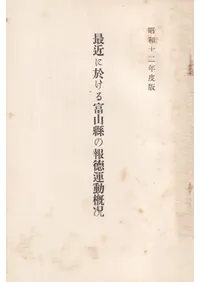 昭和十二年度版
最近に於ける富山縣の報德運動概況